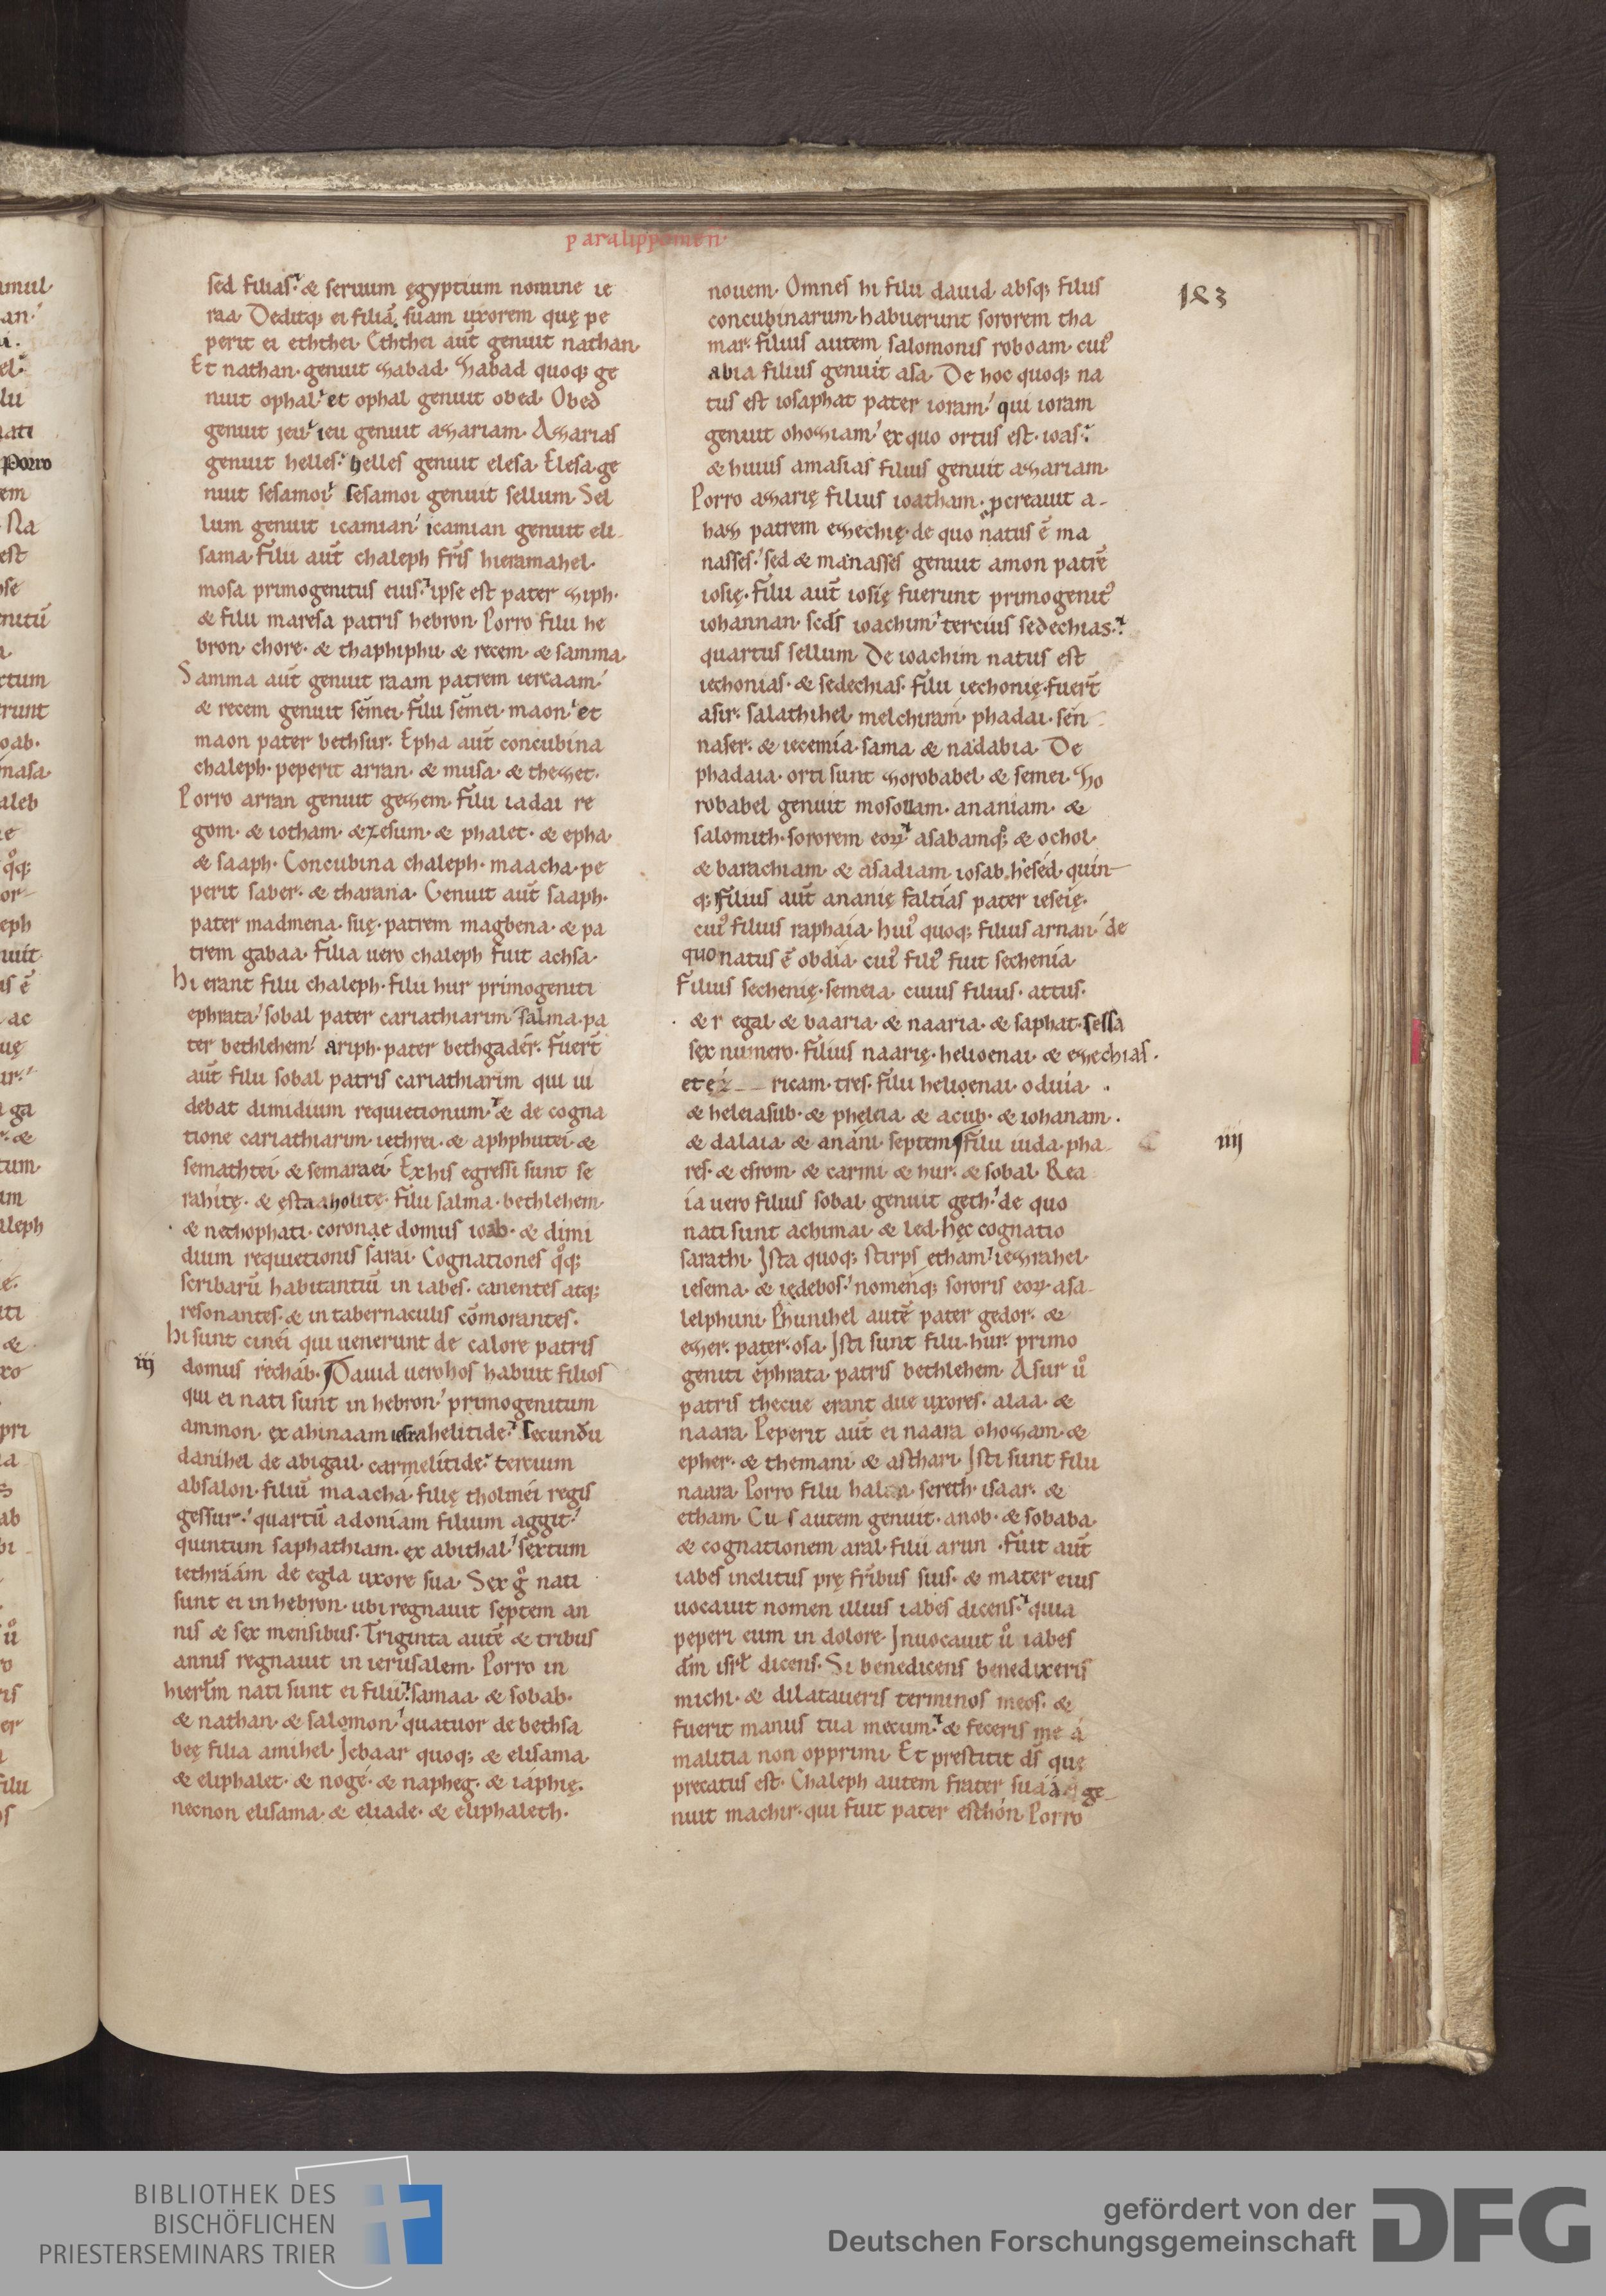 paralippomen̄
sed filias. & seruum ęgyptium nomine ie
raa. Deditq; ei filiā suam uxorem quę pe
perit ei eththei. Eththei aut̄ genuit nathan.
Et nathan genuit zabad. Zabad quoq; ge
nuit ophal. et ophal genuit obed. Obed
genuit ieu. ieu genuit azariam. Azarias
genuit helles. helles genuit elesa. Elesa ge
nuit sesamoi. sesamoi genuit sellum. Sel
lum genuit icamian. icamian genuit eli
sama. Filii aut̄ chaleph fr̄is hieramahel.
mosa primogenitus eius. ipse est pater ziph.
& filii maresa patris hebron. Porro filii he
bron. chore. & thaphiphu. & recem. & samma.
Samma aut̄ genuit raam patrem iercaam.
& recem genuit semei. filii semei. maon. et
maon pater bethsur. Epha aut̄ concubina
chaleph. peperit arran. & musa. & thezet.
Porro arran genuit gezem. filii iadai re
gom. & iotham. & zesum. & phalet. & epha.
& saaph. Concubina chaleph. maacha. pe
perit saber. & tharana. Genuit aut̄ saaph.
pater madmena. suę. patrem magbena. & pa
trem gabaa. Filia uero chaleph fuit achsa.
hi erant filii chaleph. filii hur primogeniti
ephrata. sobal pater cariathiarim. salma. pa
ter bethlehem. ariph. pater bethgader. Fuer̄t
aut̄ filii sobal patris cariathiarim qui ui
debat dimidium requietionum. & de cogna
tione cariathiarim. iethrei. & aphphutei. &
semathtei. & semaraei. Ex his egressi sunt se
rahitę. & ęstaaholitę. filii salma. bethlehem.
& nethophati. coronae domus ioab. & dimi
dium requietionis sarai. Cognationes q̊q;
scribarū habitantiū in iabes. canentes atq;
resonantes. & in tabernaculis cōmorantes.
hi sunt cinei qui uenerunt de calore patris
domus rechab. Dauid uero hos habuit filios
qui ei nati sunt in hebron. primogenitum
ammon. ex ahinaam iesrahelitide. secundū
danihel de abigail carmelitide. tercium
absalon. filiū maacha. filię tholmei regis
gessur. quartū adoniam filium aggit.
quintum saphathiam. ex abithal. sextum
iethraam de egla uxore sua. Sex g̊ nati
sunt ei in hebron. ubi regnauit septem an
nis & sex mensibus. Triginta autē & tribus
annis regnauit in ierusalem. Porro in
hierl̄m nati sunt ei filii. samaa. & sobab.
& nathan. & salomon. quatuor de bethsa
beę filia amihel. Iebaar quoq; & elisama.
& eliphalet. & noge. & napheg. & iaphię.
necnon elisama. & eliade. & eliphaleth.
iij
nouem. Omnes hi filii dauid. absq; filiis
concubinarum. habuerunt sororem tha
mar. filius autem salomonis roboam. cui᾽
abia filius genuit asa. De hoc quoq; na
tus est iosaphat pater ioram. qui ioram
genuit ohoziam. ex quo ortus est. ioas.
& huius amasias filius genuit azariam.
Porro azarię filius ioatham. p̱creauit a-
haz patrem ezechię. de quo natus ē ma
nasses. sed & manasses genuit amon patrē
iosię. Filii aut̄ iosię fuerunt primogenit᾽
iohannan. scd̄s ioachim. tercius sedechias.
quartus sellum. De ioachim natus est
iechonias. & sedechias. filii iechonię. fuer̄t
asir. salathihel. melchiram. phadai. sen
naser. & iecemia. sama. & nadabia. De
phadaia. orti sunt zorobabel. & semei. Zo
robabel genuit mosollam. ananiam. &
salomith. sororem eoꝝ. asabamq; & ochol.
& barachiam. & asadiam. iosab. hesed. quin
q; Filius aut̄ ananię faltias pater ieseię.
cui᾽ filius raphaia. hui᾽ quoq; filius arnan. de
quo natus ē obdia. cui᾽ fili᾽ fuit sechenia.
Filius sechenię. semeia. cuius filius. attus.
& r egal. & baaria. & naaria. & saphat. sessa
sex numero. Filius naarię. helioenai. & ezechias.
et ez ricam. tres. filii helioenai. oduia.
& heleiasub. & pheleia. & acub. & iohanam.
& dalaia. & anani. septem. Filii iuda. pha
res. & esrom. & carmi. & hur. & sobal. Rea
ia uero filius sobal. genuit geth. de quo
nati sunt achimai. & led. hęc cognatio
sarathi. Ista quoq; stirps etham. iezrahel.
iesema. & iedebos. nomen̄q; sororis eoꝝ. asa
lelphuni. Phunihel autē pater gedor. &
ezer. pater. osa. Isti sunt filii. hur. primo
geniti ephrata. patris bethlehem. Asur ů
patris thecue erant due uxores. alaa. &
naara. Peperit aut̄ ei naara ohozam. &
epher. & themani. & asthari. Isti sunt filii
naara. Porro filii halaa. sereth. isaar. &
etham. Cu s autem genuit. anob. & sobaba.
& cognationem aral. filii arun. Fuit aut̄
iabes inclitus prę fr̄ibus suis. & mater eius
uocauit nomen illius iabes dicens. quia
peperi eum in dolore. Inuocauit ů iabes
dm̄ isrl̄ dicens. Si benedicens benedixeris
michi. & dilataueris terminos meos. &
fuerit manus tua mecum. & feceris me a
malitia non opprimi. Et prestitit ds̄ que
precatus est. Chaleph autem frater suaa ge
nuit machir. qui fuit pater esthon. Porro
183
iiij
BIBLIOTHEK DES
BISCHÖFLICHEN
PRIESTERSEMINARS TRIER
gefördert von der
Deutschen Forschungsgemeinschaft
DFG